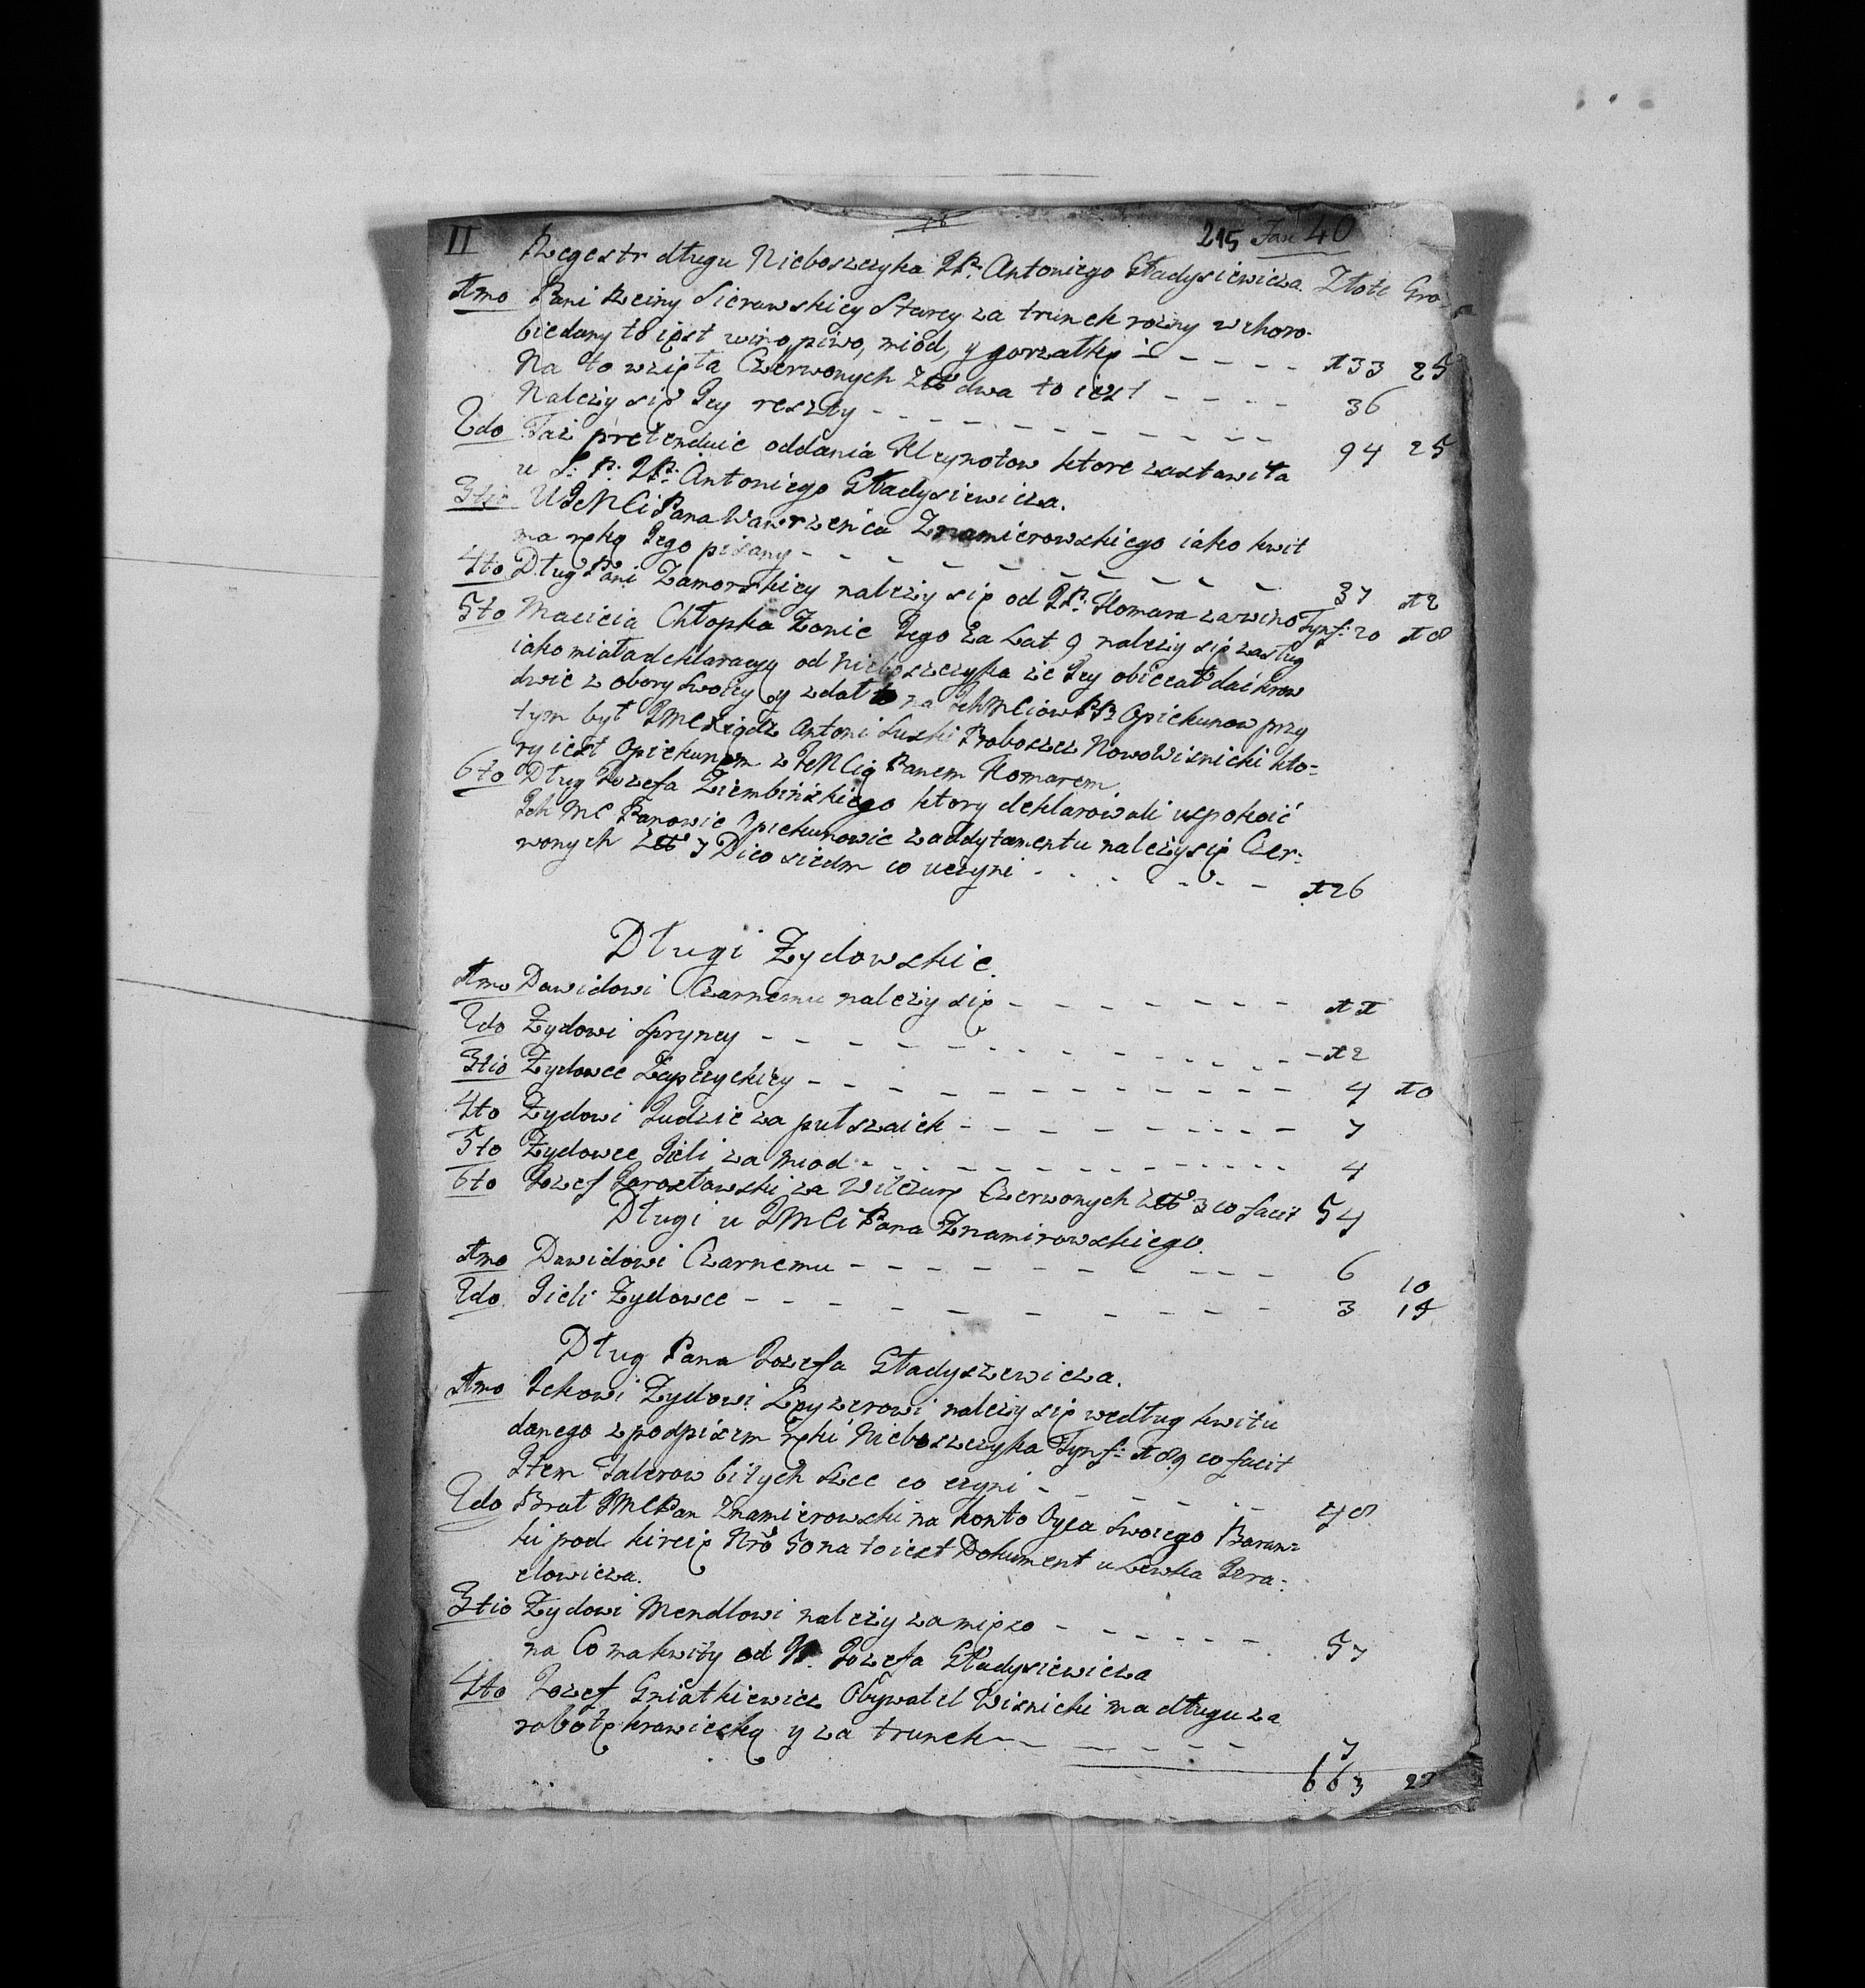 II 215 Fasc 40
Regestr długu Nieboszczyka JP: Antoniego Gładysiewicza. Złote Gro
1mo Pani Reiny Sierawskiey Starey za trunek rozny w choro-
bie dany to iest wino, piwo, miód, y gorzałkę - - - - 133 25
Na to wzięła Czerwonych Złł dwa to iest - - - - 36
Należy się Jey reszty - - - - - - - - - 94 25
2do Taż pretenduie oddania Kleynotow ktore zastawiła
u S: P: JP: Antoniego Gładysiewicza.
3tio U JeMCi Pana Wawrzenca Znamierowskiego iako kwit
ma ręką Jego pisany - - - - - - - - - 37 12
4to Dług Pani Zamorskiey należy się od JP: Komara za wino Tynf: 20 18
5to Macieia Chłopka Zonie Jego za Lat 9 należy się zasług
iako miała deklaracyą od Nieboszczyka że Jey obiecał dać krow
dwie z obory swoiey y zdał to na IchMCiow PP Opiekunow przy
tym był JMC Xiądz Antoni Suski Proboszcz NowoWisnicki kto=
ry iest Opiekunem z JeMCią Panem Komarem
6to Dług Jozefa Ziembińskiego ktory deklarowali uspokoić
Ich MC Panowie Opiekunowie za addytamentu należy się Czer:
wonych Złł 7 Dico siedm co uczyni - - - - - - 126
Długi Zydowskie.
1mo Dawidowi Czarnemu należy się - - - - - - - 11
2do Zydowi Spryncy - - - - - - - - - - 12
3tio Zydowce Łapczyckiey - - - - - - - - - 4 10
4to Zydowi Judzie za pułszaiek - - - - - - - 7
5to Zydowce Jieli za Miod - - - - - - - - 4
6to Jozef Jarosławski za Wilczurę Czerwonych Złł 3 co facit 54
Długi u JMCi Pana Znamirowskiego.
1mo Dawidowi Czarnemu - - - - - - - - - 6 10
2do Jieli Zydowce - - - - - - - - - 3 15
Dług Pana Jozefa Gładyszewicza.
1mo Ickowi Zydowi Layzerowi należy się według kwitu
danego z podpisem ręki Nieboszczyka Tynf: 189 co facit
Item Talerow bitych szec co czyni - - - - - - 48
2do Brat JMC Pan Znamierowski na konto Oyca swoiego Baran=
ki pod kireię Nro 50 na to iest Dokument u Lewka Izra-
elowicza.
3tio Zydowi Mendlowi należy za mięso - - - - - - 57
na Co ma kwity od P. Jozefa Gładysiewicza
4to Jozef Gniatkiewicz Obywatel Wisnicki ma długu za
robotę krawiecką y za trunek - - - - - - 7
663 27